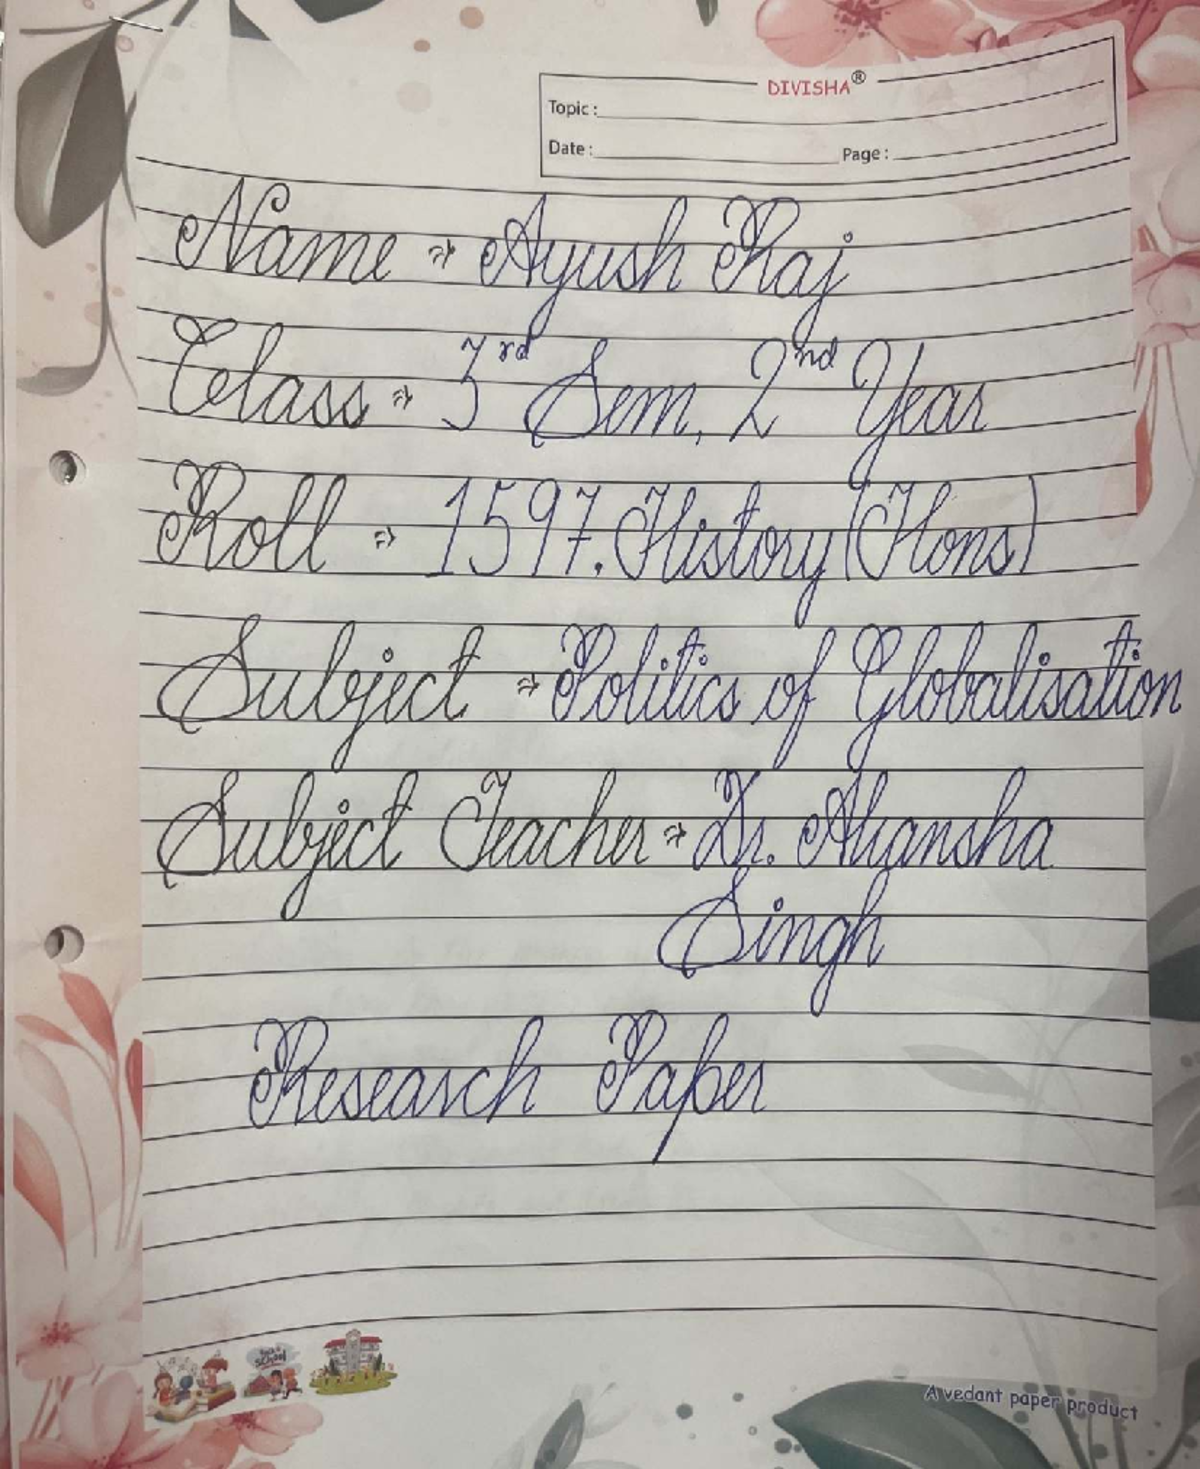 DIVISHA®
Topic :
Date : Page :
Name ⇒ Ayush Raj
Class ⇒ 3rd Sem, 2nd Year
Roll ⇒ 1597. History (Hons)
Subject ⇒ Politics of Globalisation
Subject Teacher ⇒ Dr. Akansha
Singh
Research Paper
A vedant paper product